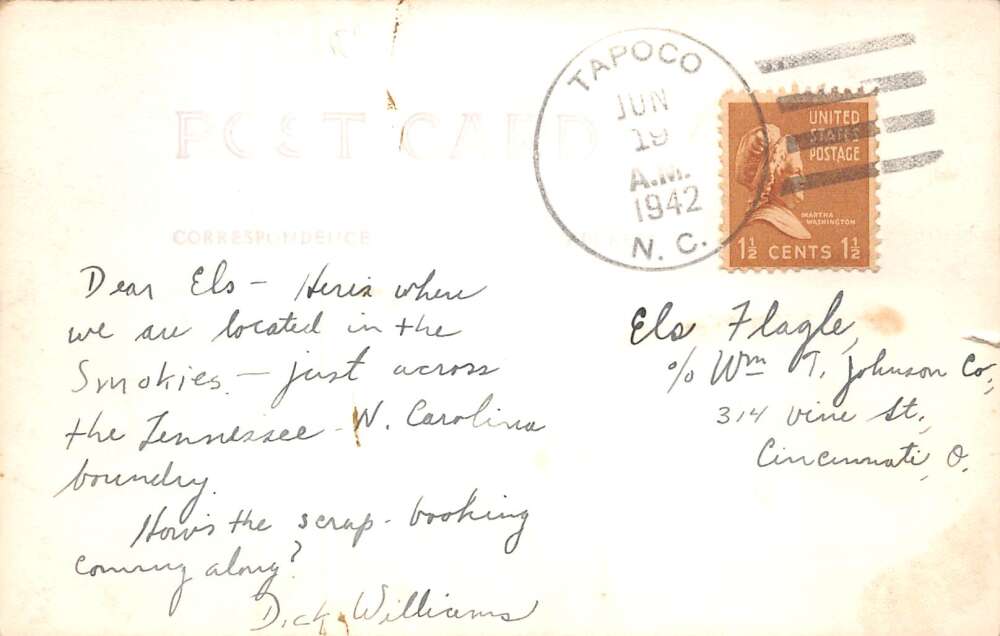 POST CARD
TAPOCO
JUN
19
A.M.
1942
N. C.
UNITED
STATES
POSTAGE
MARTHA
WASHINGTON
1½ CENTS 1½
CORRESPONDENCE
Dear Els - Here's where
we are located in the
Smokies - just across
the Tennessee - N. Carolina
boundry.
How's the scrap-booking
coming along?
Dick Williams
Els Flagle,
c/o Wm T. Johnson Co.,
314 Vine St.,
Cincinnati, O.